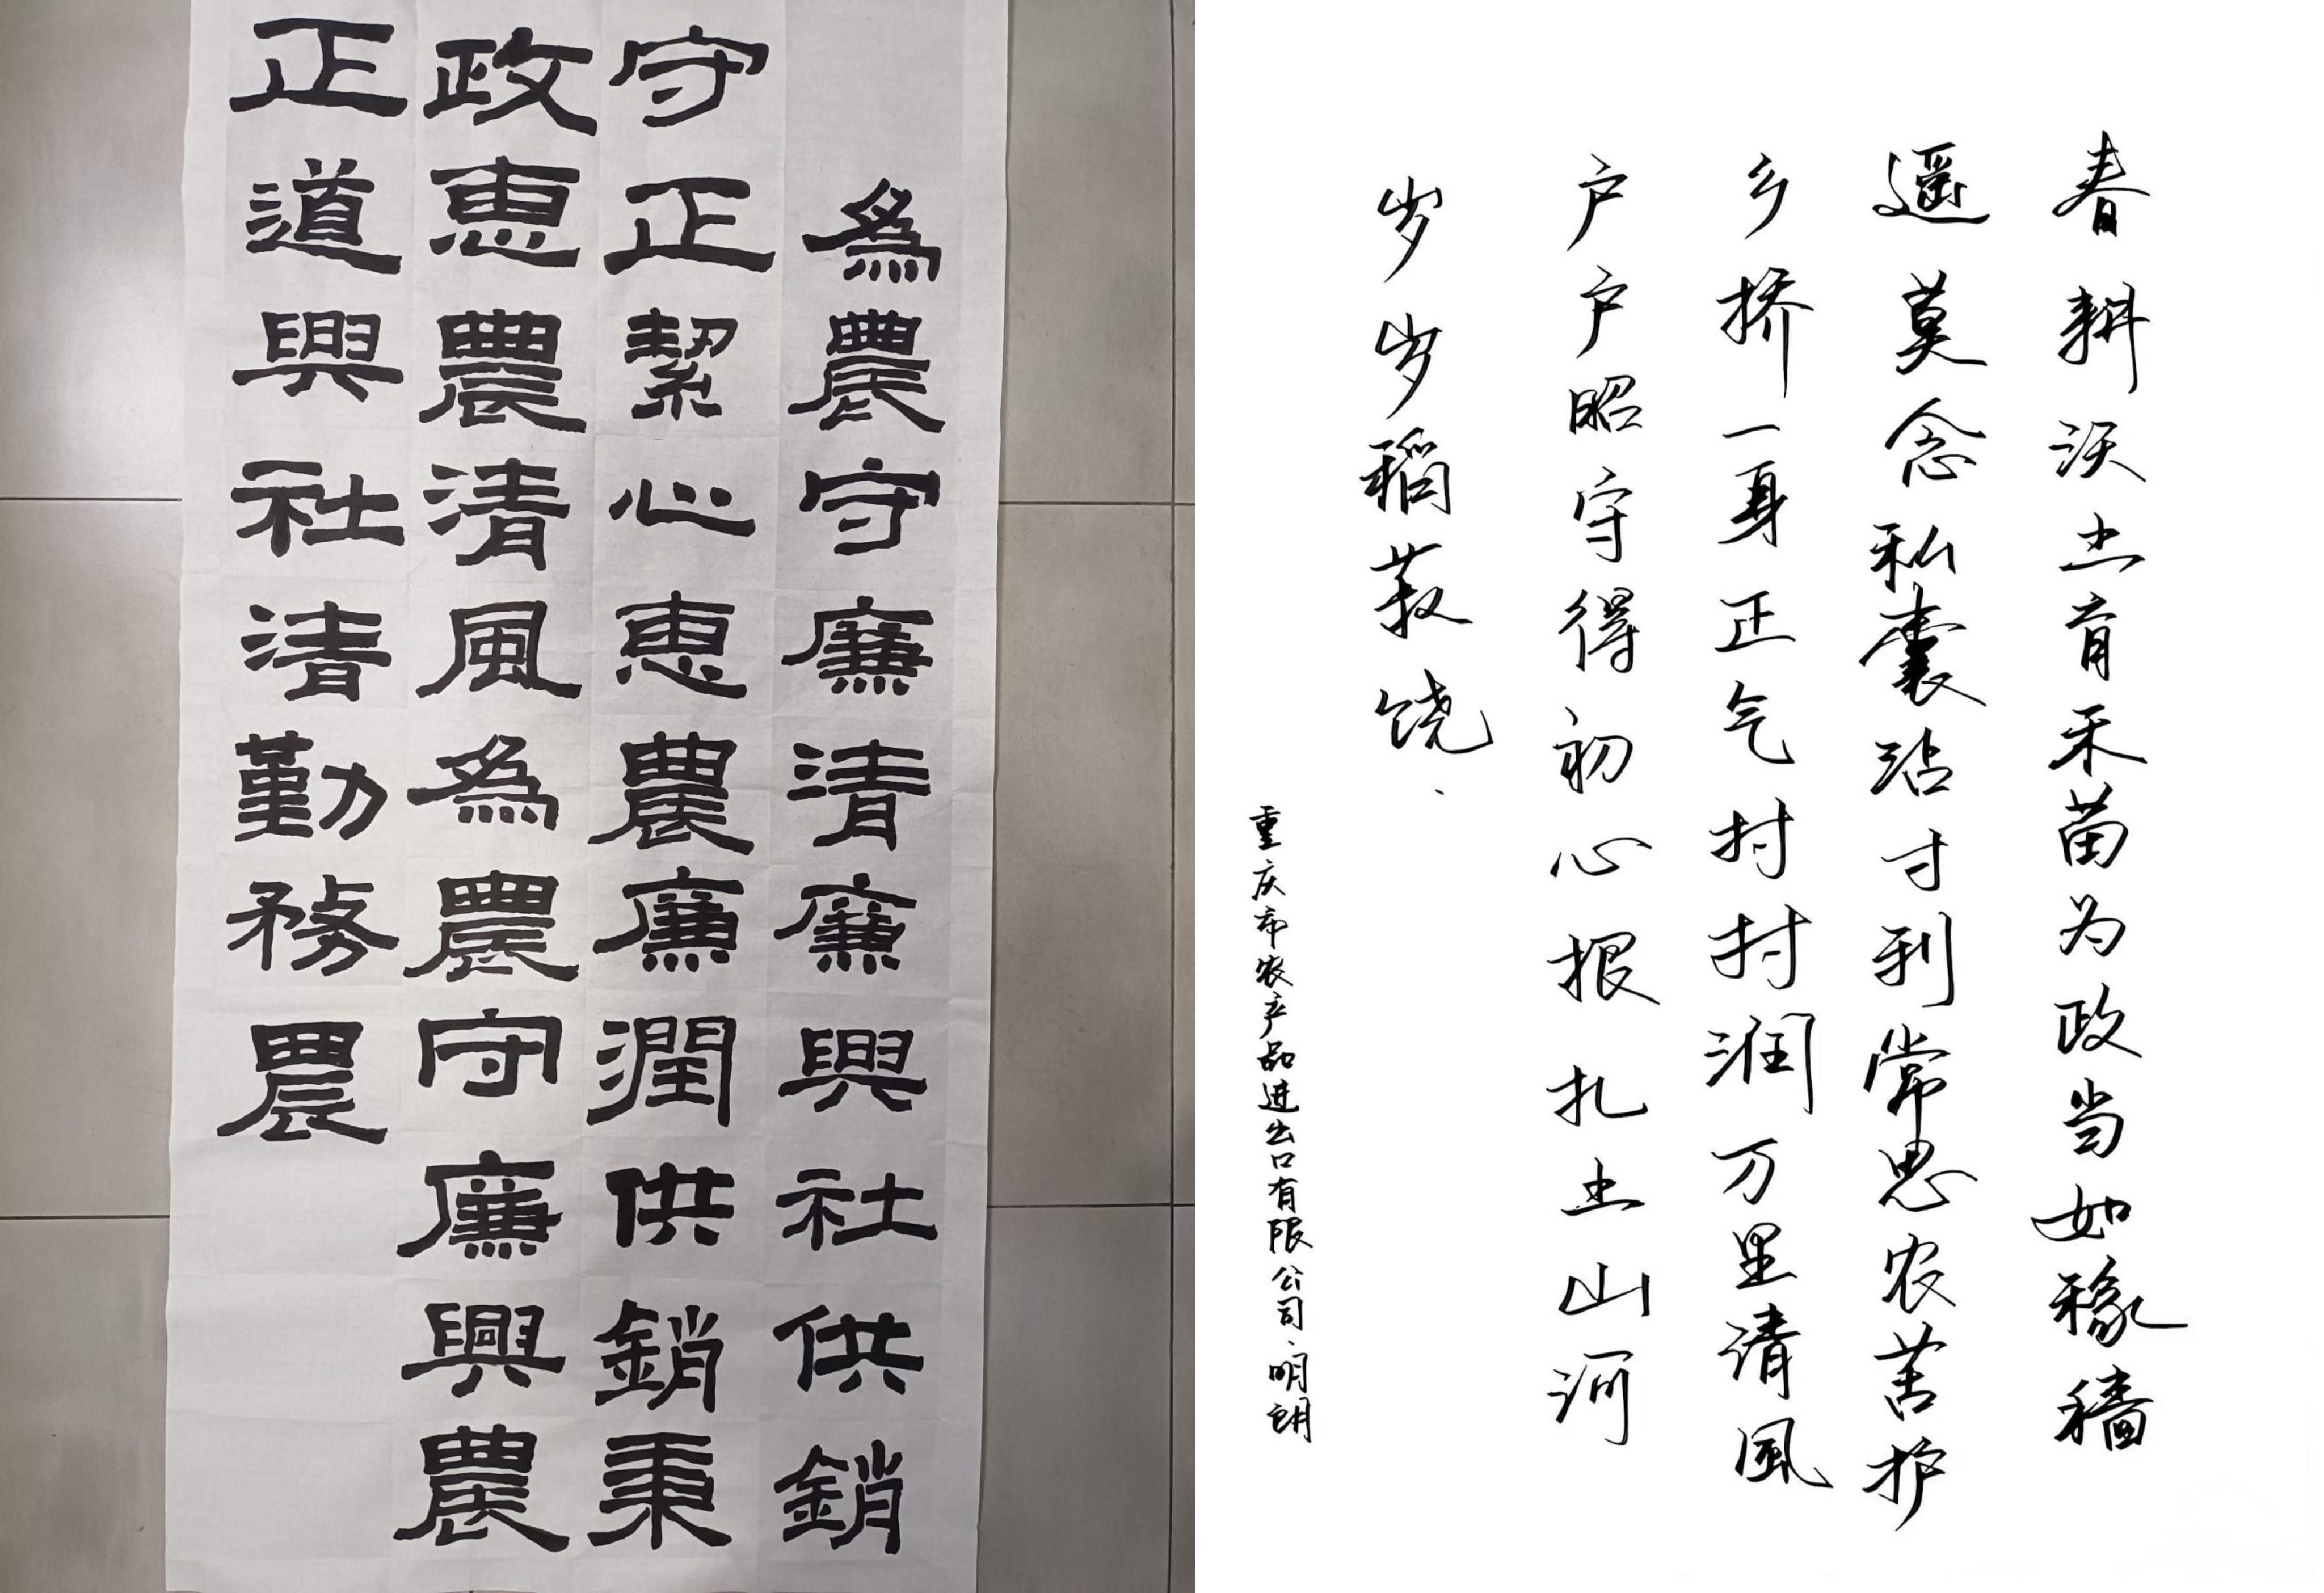 為農守廉清廉興社供銷
守正絜心恵農廉潤供銷秉
政恵農清風為農守廉興農
正道興社清勤務農
春耕沃土育禾苗为政当如稼穑
遥莫念私囊沾寸利常思农苦护
乡桥一身正气村村润万里清風
户户昭守得初心根扎土山河
岁岁稻菽饶.
重庆市农产品进出口有限公司·明朗